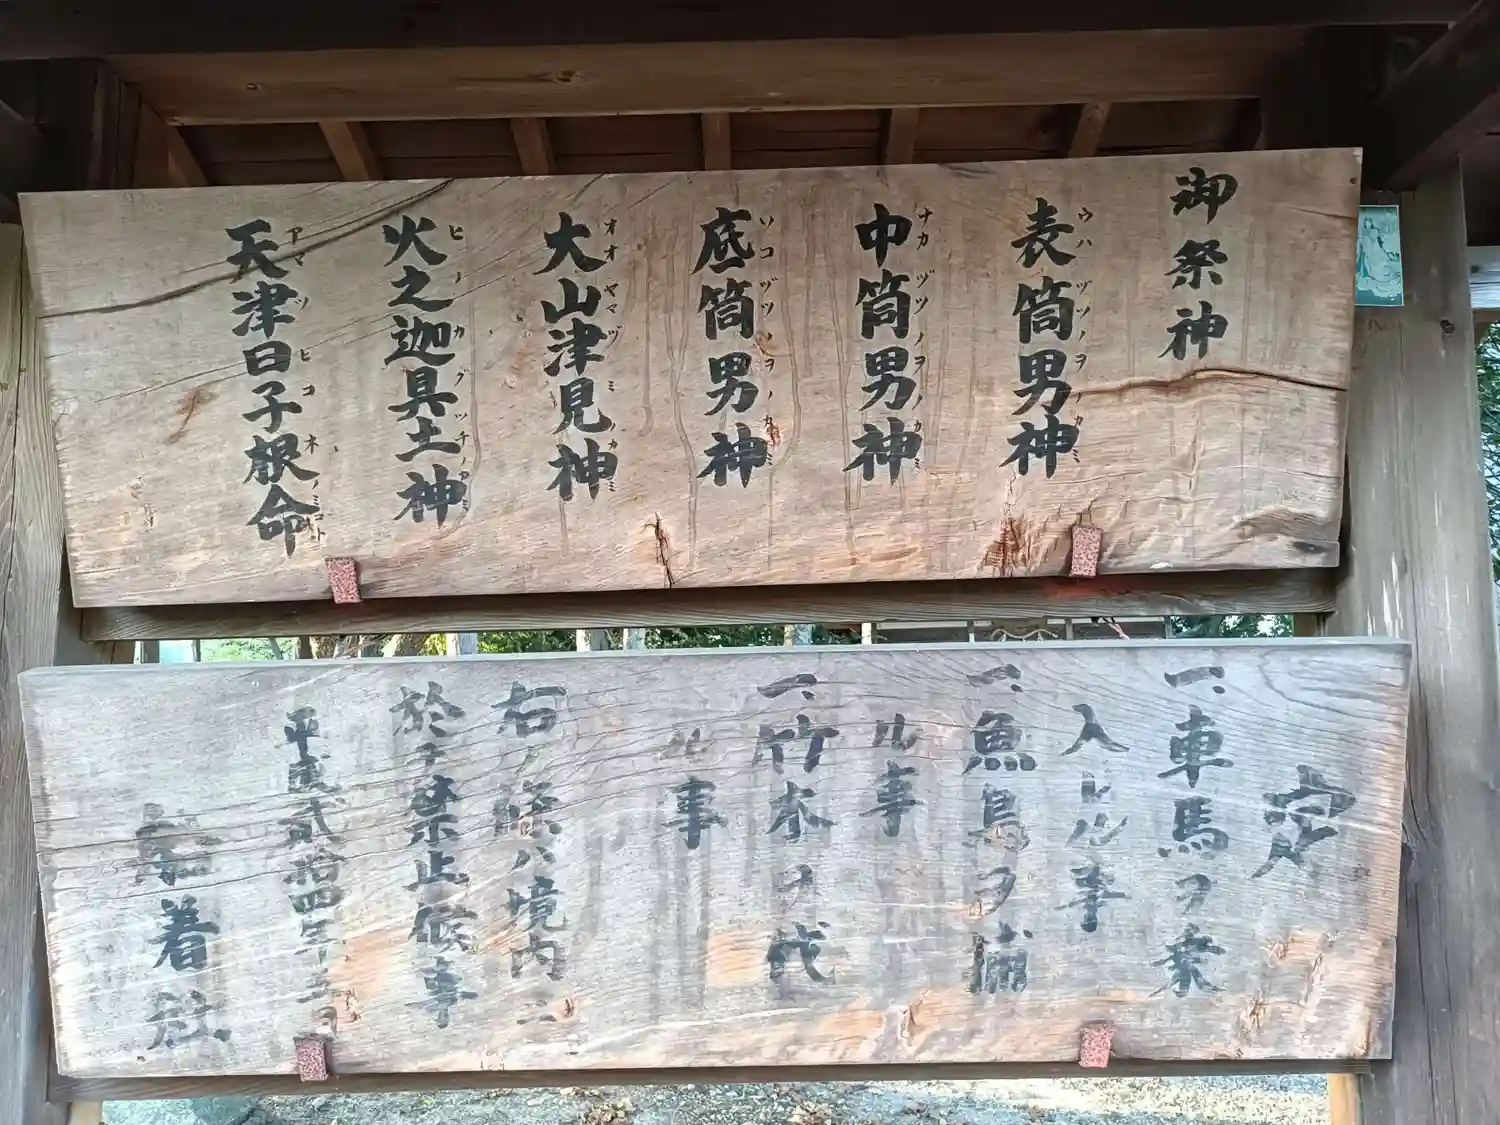 御祭神
表筒男神
ウハヅツノヲノカミ
中筒男神
ナカヅツノヲノカミ
底筒男神
ソコヅツノヲノカミ
大山津見神
オオヤマヅミノカミ
火之迦具土神
ヒノカグツチノカミ
天津日子根命
アマツヒコネノミコト
定
一、車馬ヲ乗
入ルヽ事
一、魚鳥ヲ捕
ル事
一、竹木ヲ伐
ル事
右ノ條ハ境内ニ
於テ禁止候事
平成弐拾四年
着社